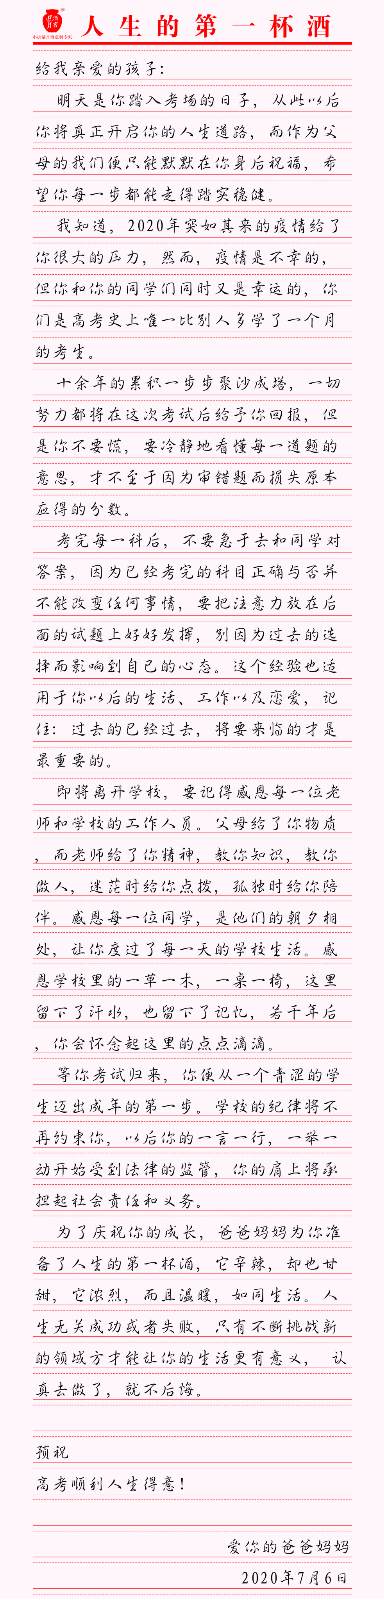 人生的第一杯酒
给我亲爱的孩子：
明天是你踏入考场的日子，从此以后
你将真正开启你的人生道路，而作为父
母的我们便只能默默在你身后祝福，希
望你每一步都能走得踏实稳健。
我知道，2020年突如其来的疫情给了
你很大的压力，然而，疫情是不幸的，
但你和你的同学们同时又是幸运的，你
们是高考史上唯一比别人多学了一个月
的考生。
十余年的累积一步步聚沙成塔，一切
努力都将在这次考试后给予你回报，但
是你不要慌，要冷静地看懂每一道题的
意思，才不至于因为审错题而损失原本
应得的分数。
考完每一科后，不要急于去和同学对
答案，因为已经考完的科目正确与否并
不能改变任何事情，要把注意力放在后
面的试题上好好发挥，别因为过去的选
择而影响到自己的心态。这个经验也适
用于你以后的生活、工作以及恋爱，记
住：过去的已经过去，将要来临的才是
最重要的。
即将离开学校，要记得感恩每一位老
师和学校的工作人员。父母给了你物质
，而老师给了你精神，教你知识，教你
做人，迷茫时给你点拨，孤独时给你陪
伴。感恩每一位同学，是他们的朝夕相
处，让你度过了每一天的学校生活。感
恩学校里的一草一木，一桌一椅，这里
留下了汗水，也留下了记忆，若干年后
，你会怀念起这里的点点滴滴。
等你考试归来，你便从一个青涩的学
生迈出成年的第一步。学校的纪律将不
再约束你，以后你的一言一行，一举一
动开始受到法律的监管，你的肩上将承
担起社会责任和义务。
为了庆祝你的成长，爸爸妈妈为你准
备了人生的第一杯酒，它辛辣，却也甘
甜，它浓烈，而且温暖，如同生活。人
生无关成功或者失败，只有不断挑战新
的领域方才能让你的生活更有意义， 认
真去做了，就不后悔。
预祝
高考顺利人生得意！
爱你的爸爸妈妈
2020年7月6日